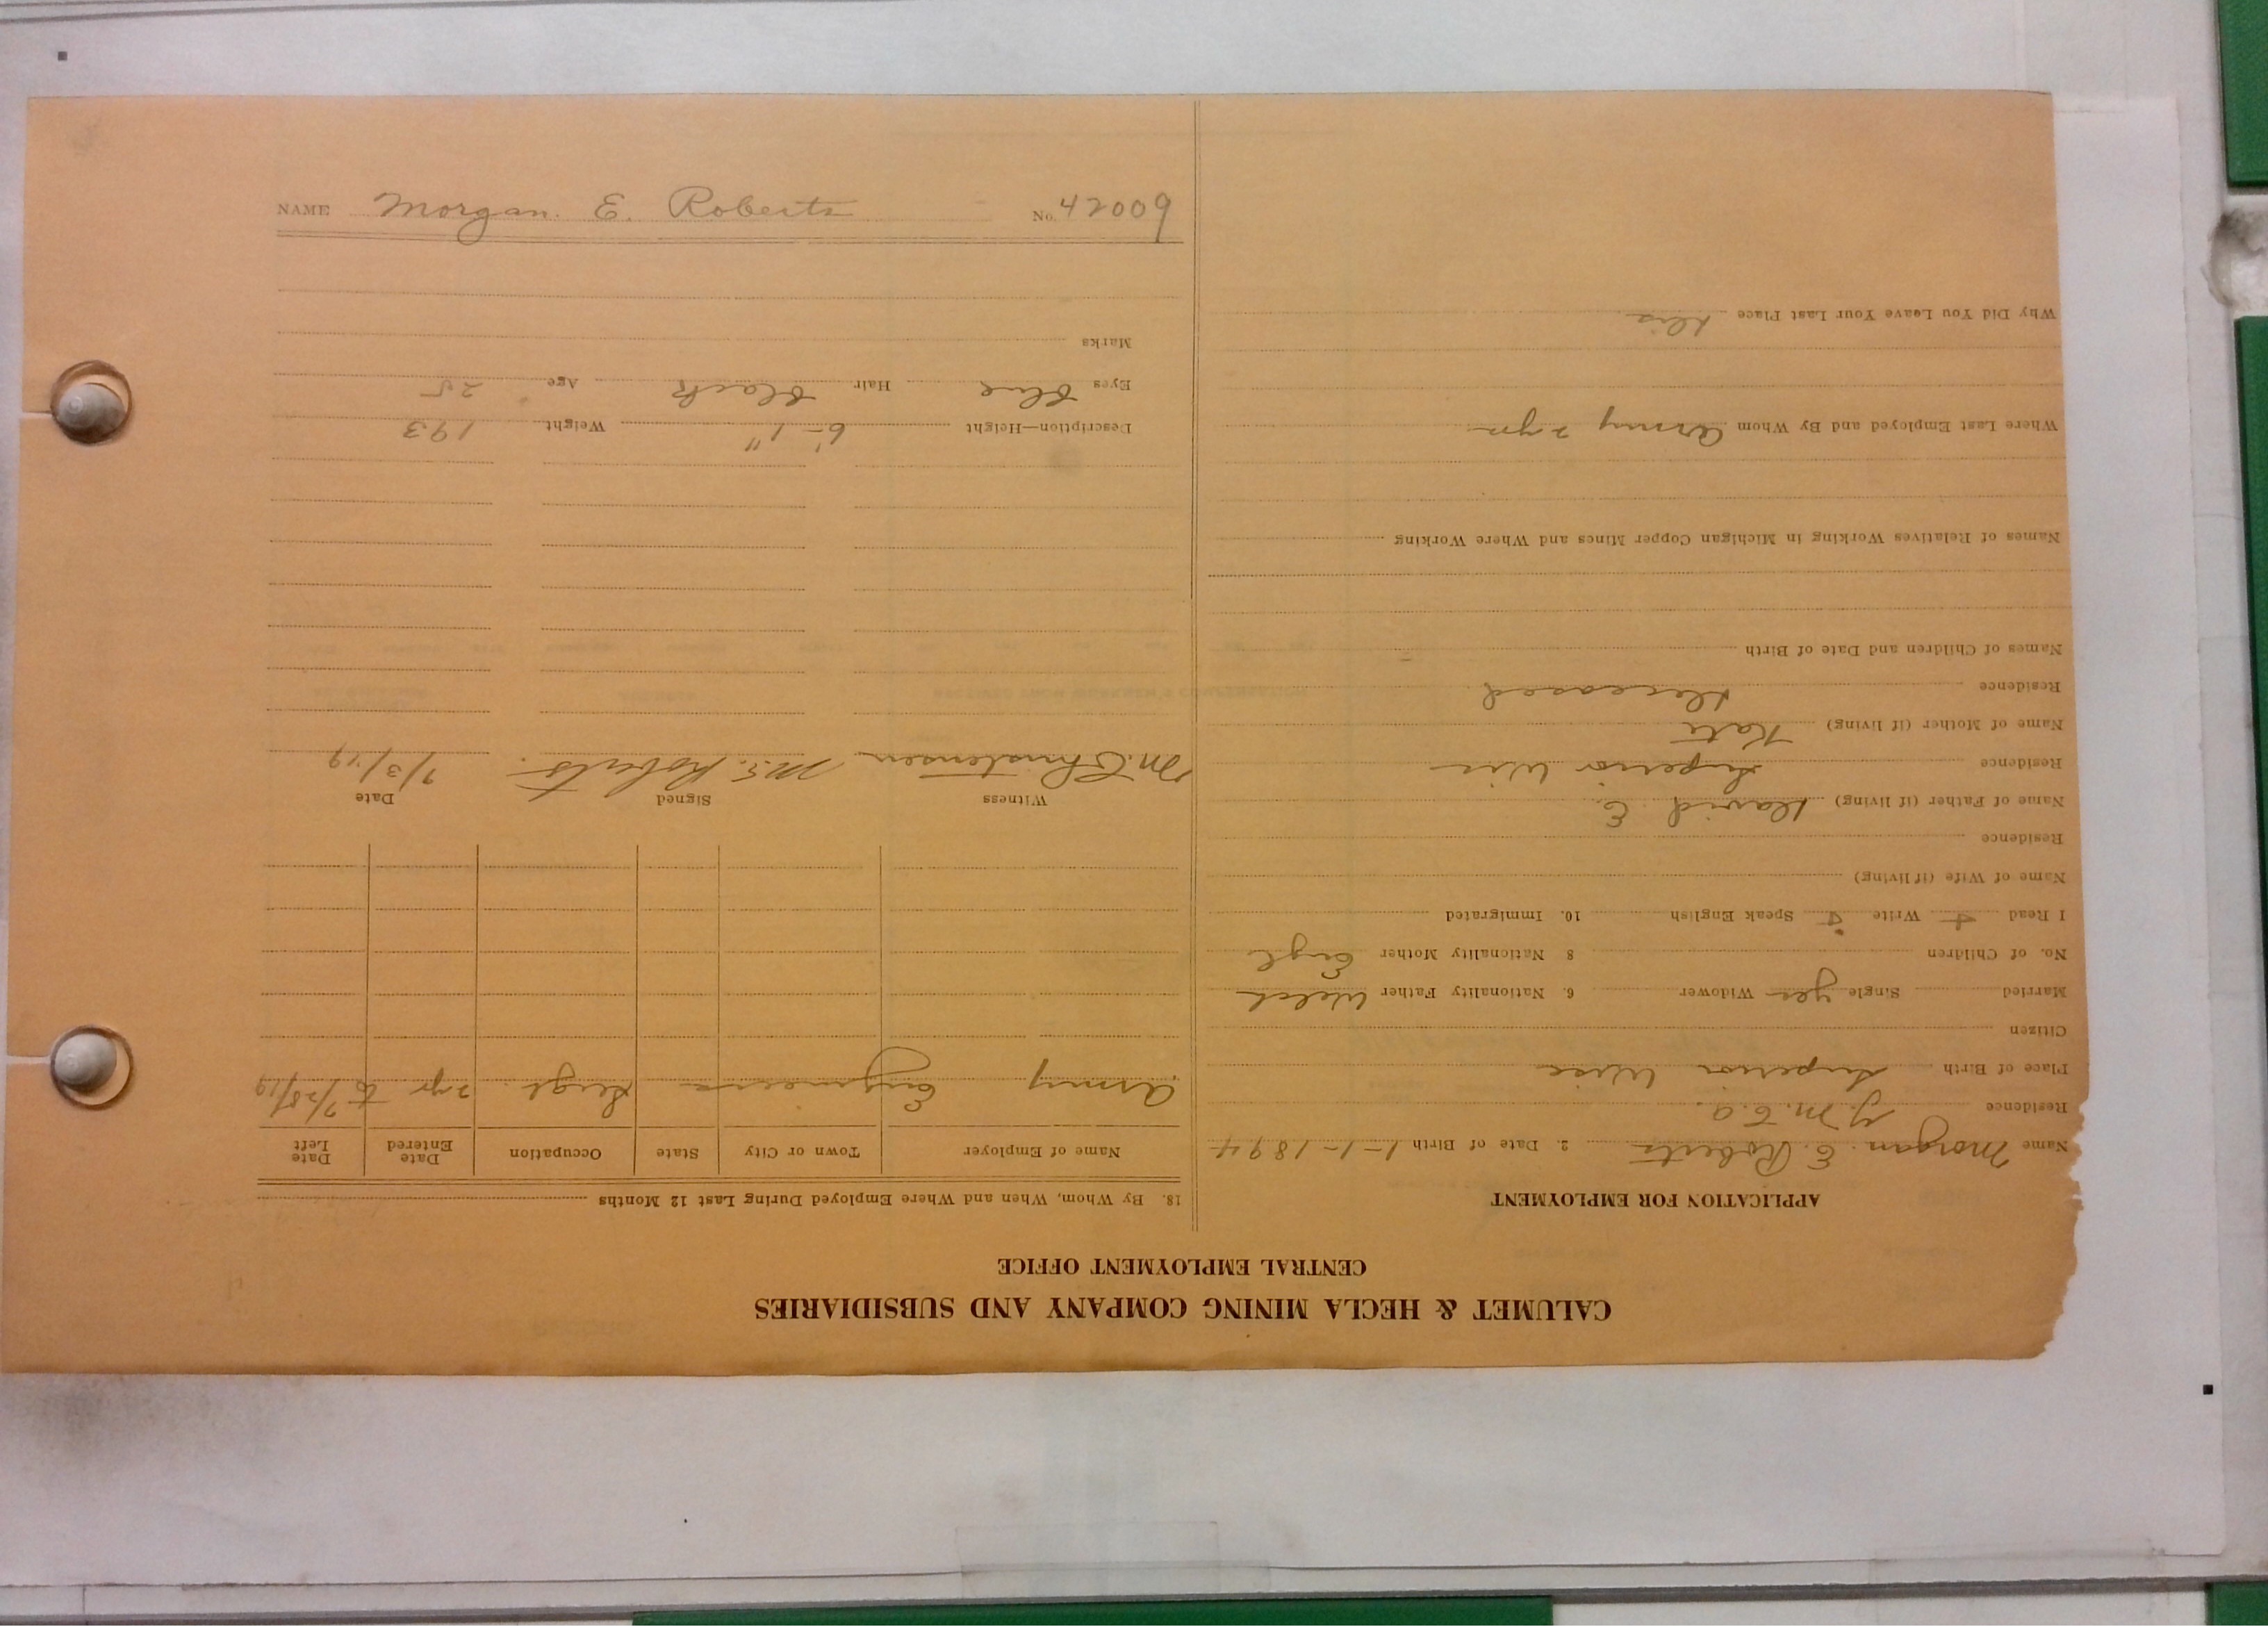 CALUMET & HECLA MINING COMPANY AND SUBSIDIARIES
CENTRAL EMPLOYMENT OFFICE
APPLICATION FOR EMPLOYMENT
Name Morgan E. Roberts 2. Date of Birth 1-1-1894
Residence Y.M.C.A.
Place of Birth Superior Wisc
Citizen
Married Single yes Widower 6. Nationality Father Welch
No. of Children 8 Nationality Mother Engl
I Read Write Speak English 10. Immigrated
Name of Wife (if living)
Residence
Name of Father (if living) David E.
Residence Superior Wis
Name of Mother (if living) Kate
Residence deceased
Names of Children and Date of Birth
Names of Relatives Working in Michigan Copper Mines and Where Working
Where Last Employed and By Whom Army 2 yrs
Why Did You Leave Your Last Place
18. By Whom, When and Where Employed During Last 12 Months
Name of Employer Town or City State Occupation Date Entered Date Left
Army Engineers Sergt. 2 yr to
Witness Signed Date
M. Christensen M.E. Roberts
Description—Height 6'-1" Weight 193
Eyes blue Hair black Age 25
Marks
NAME Morgan. E. Roberts No. 42009